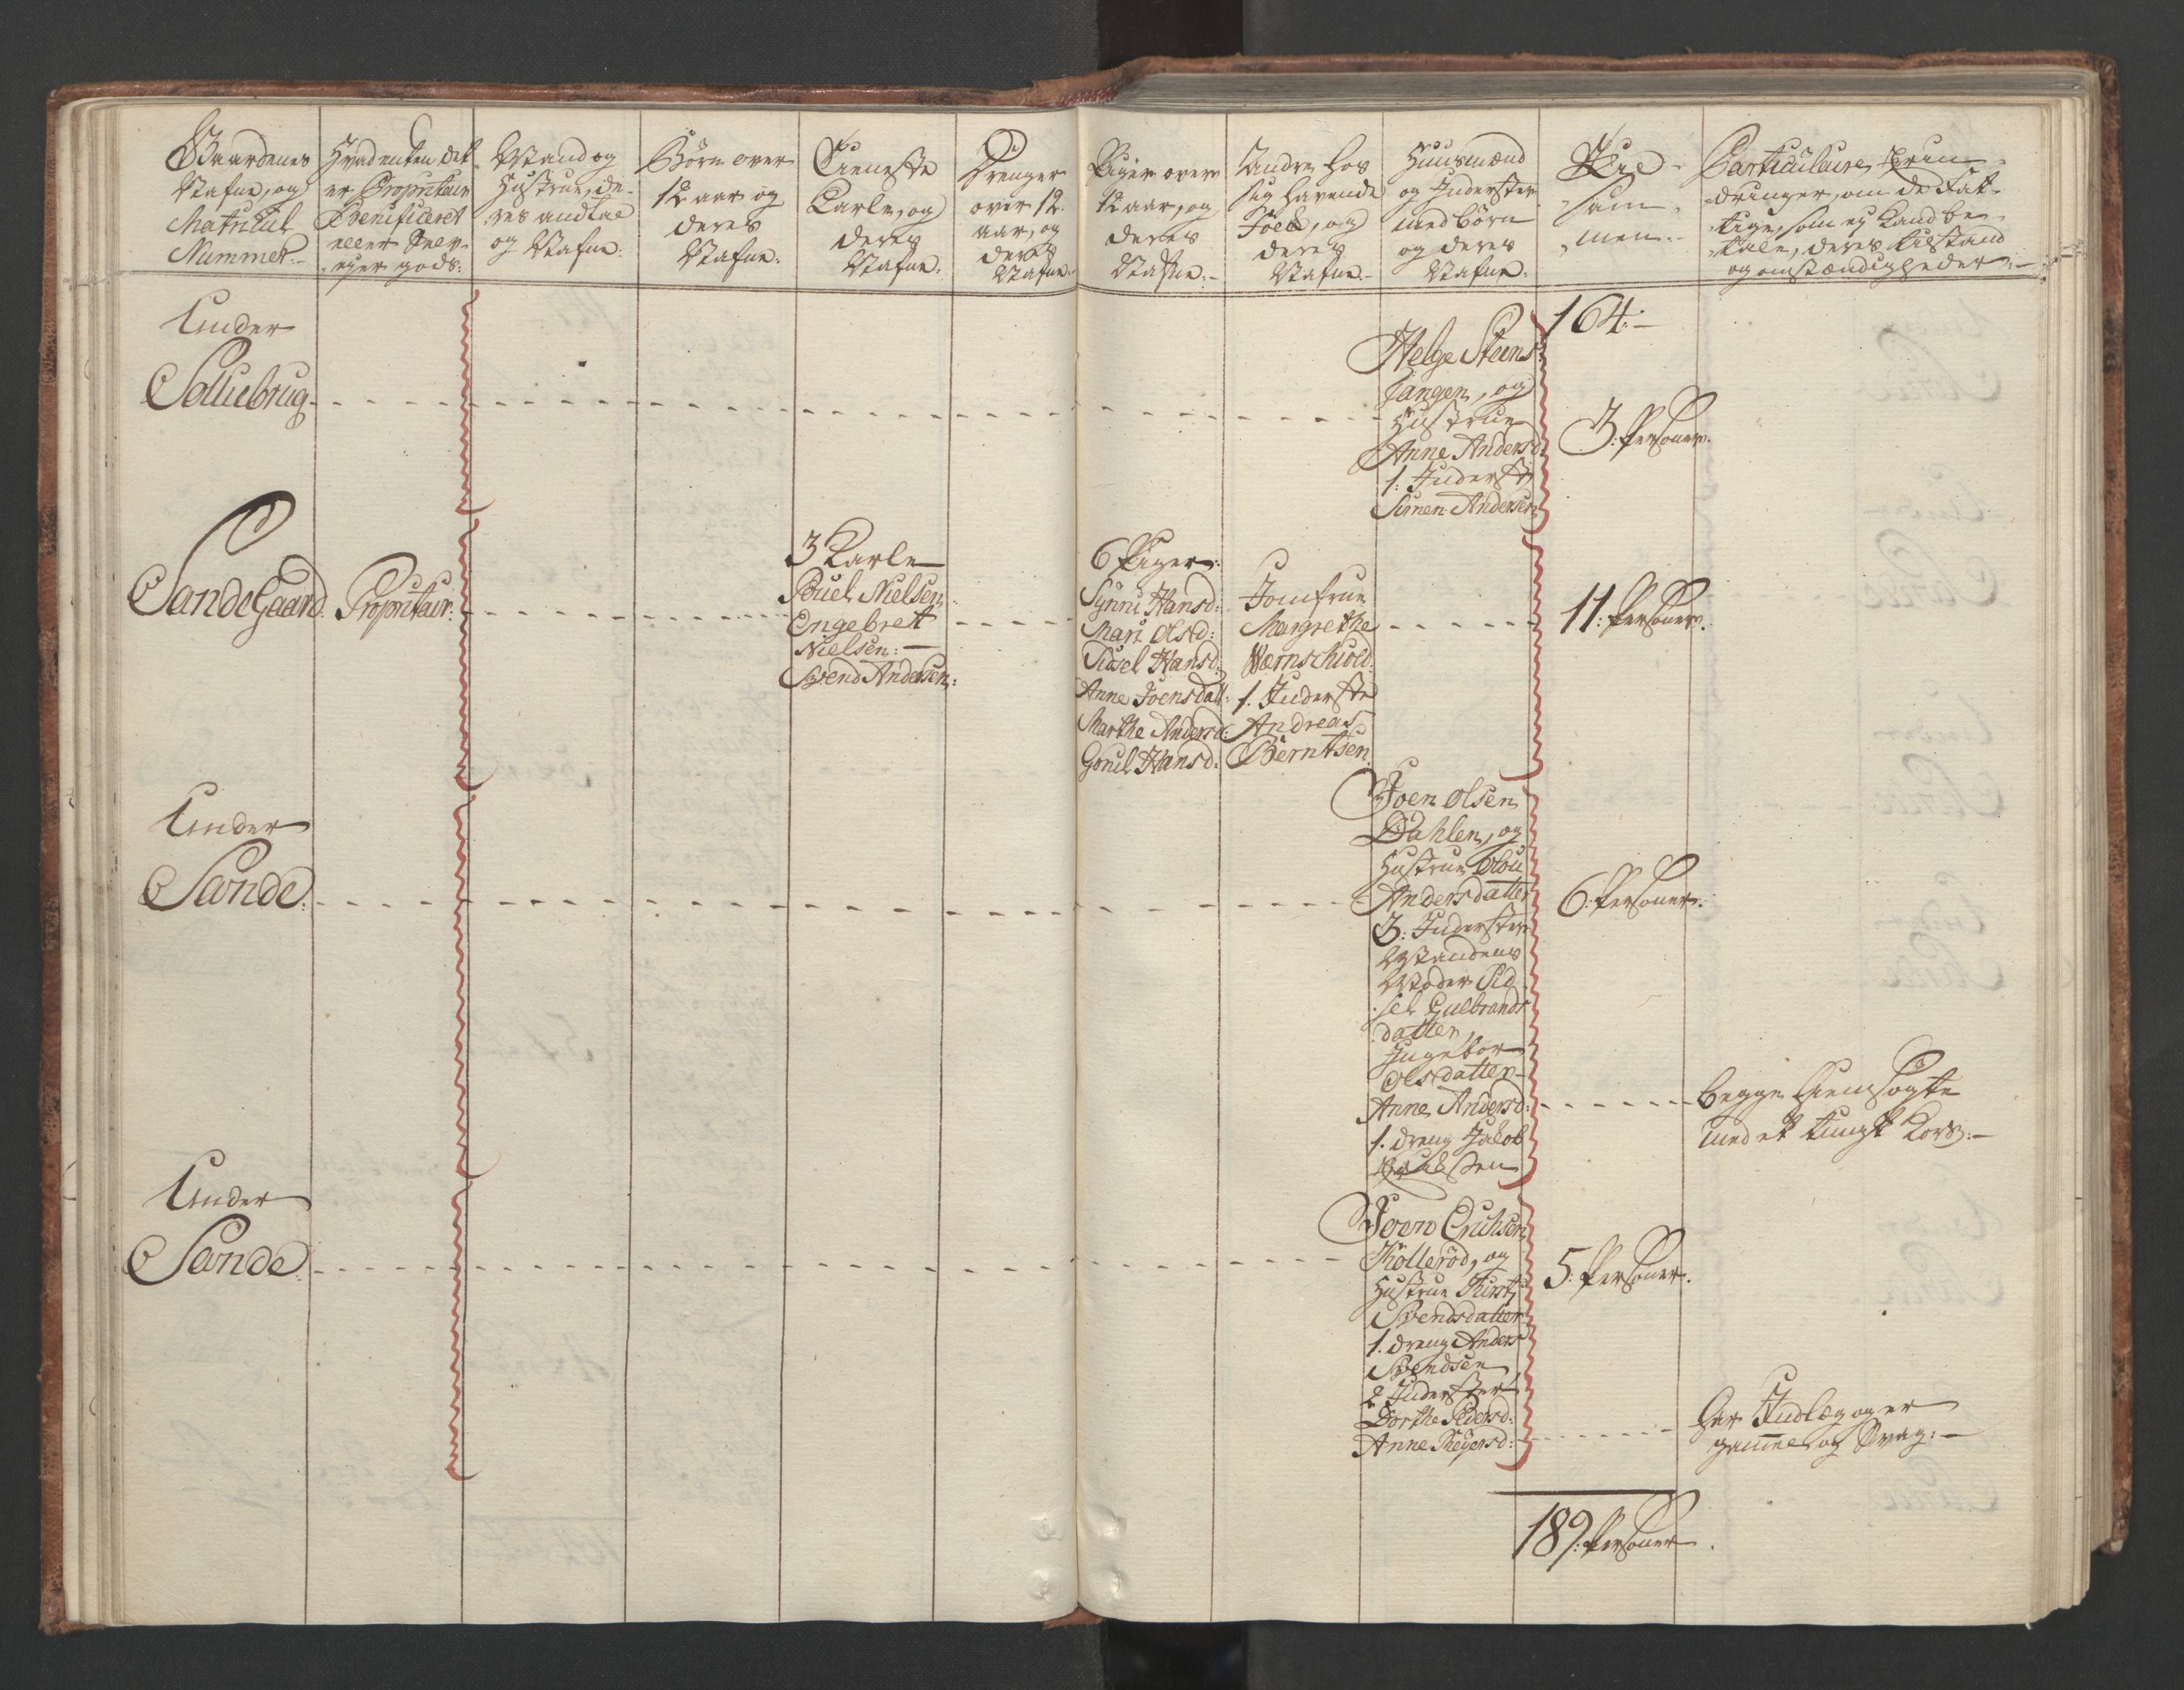 Gaardenes
Nafne, og
Matricul
Nummer.
Hvad enten det
er Proprietair
Beneficeret
eller Selv-
ejer gods:
Mand og
Hustrue, de-
res andtal
og Nafne:
Börn over
12 aar og
deres
Nafne.
Tieneste
Karle, og
deres
Nafne.
Drenger
over 12
aar, og
deres
Nafne.
Piger over
12 aar, og
deres
Nafne.-
Andre hos
sig havende
Folck, og
deres
Nafne.-
Huusmænd
og Inderster
med börn
og deres
Nafne.
Til-
sam-
men.-
Particulaire Erin-
dringer, om de Fat-
tige, som ej kand be-
tale, deres tilstand
og omstændigheder.-
164.-
Under
Solliebrug.
Helge Steens
Tangen, og
Hustrue
Anne Andersd:
1. Inderste
Simen Andersen
3. Persoener.
SandeGaard.
Proprietair.
3 Karle
Pouel Nielsen
Engebret
Nielsen:-
Svend Andersen:
6 Piger:
Synni Hansd:
Mari Olsd:
Sidsel Hansd:
Anne Joensdatt:
Marthe Andersd:
Gonil Hansd:
Jomfrue
Margrethe
Wernschiold.
1. Inderste
Andreas
Berntsen.
11. Persoener.
Under
Sande.
Joen Olsen
Dahlen, og
Hustrue Olou
Andersdatter
3. Inderster
Mandens
Moder Sid
sel Gulbrands
datter,
Ingebor
Olsdatter
Anne Andersd:
1. dreng Jacob
6. Persoener.
begge hiemsögte
med et tungt Kors.-
Under
Sande.
Joen Erichsen
Töllerød, og
Hustrue Kirsti
Svendsdatter
1. dreng Anders
Svendsen
2 Inderster
Dorthe Pedersd:
Anne Reyersd:
5. Persoener.
har Indlæg og er
gammel og Svag:-
189. Persoener.